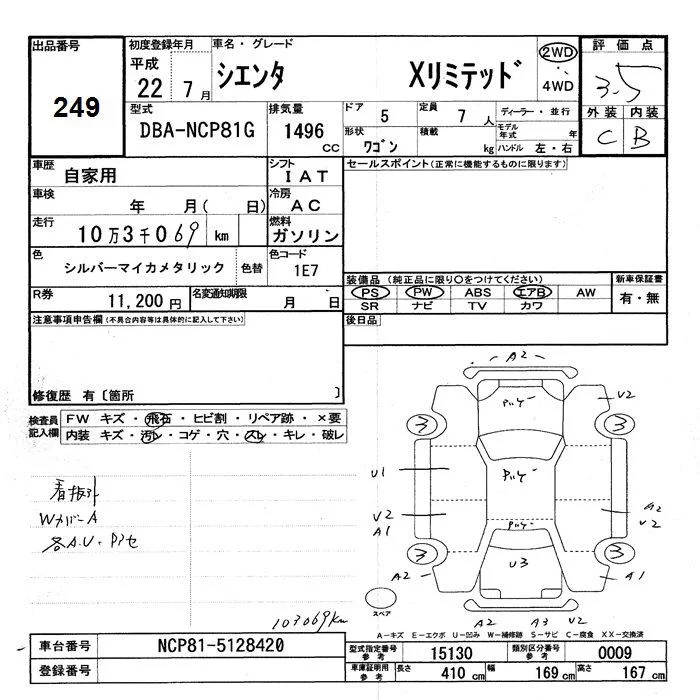 出品番号
249
初度登録年月
平成
22 7月
車名・グレード
シエンタ Xリミテッド
2WD
4WD
評価点
3.5
外装 内装
C B
型式
DBA-NCP81G
排気量
1496
CC
ドア 5
定員 7人
ディーラー・並行
形状 ワゴン
積載 kg
モデル年式 年
ハンドル 左・右
車歴 自家用
シフト IAT
セールスポイント(正常に機能するものに限ります)
車検 年 月( 日)
冷房 AC
走行 10万3千069 km
燃料 ガソリン
色 シルバーマイカメタリック 色替
色コード 1E7
装備品 (純正品に限り○をつけてください)
PS PW ABS エアB AW
SR ナビ TV カワ
新車保証書
有・無
R券 11,200円
名変通知期限 月 日
後日品
注意事項申告欄(不具合内容等は具体的に記入して下さい)
修復歴 有〔箇所 〕
検査員記入欄
FW キズ・飛石・ヒビ割・リペア跡・×要
内装 キズ・汚レ・コゲ・穴・スレ・キレ・破レ
WカバーA
各A.U.
A2
U2
3 3
U1
U2
A1
A2
U2
U3
3 3
A2
A1
スペア
A2 A3 U2
103069km
A-キズ E-エクボ U-凹み W-補修跡 S-サビ C-腐食 XX-交換済
車台番号 NCP81-5128420
登録番号
型式指定番号 参考 15130
類別区分番号 参考 0009
車庫証明用 参考 長さ 410 cm 幅 169 cm 高さ 167 cm